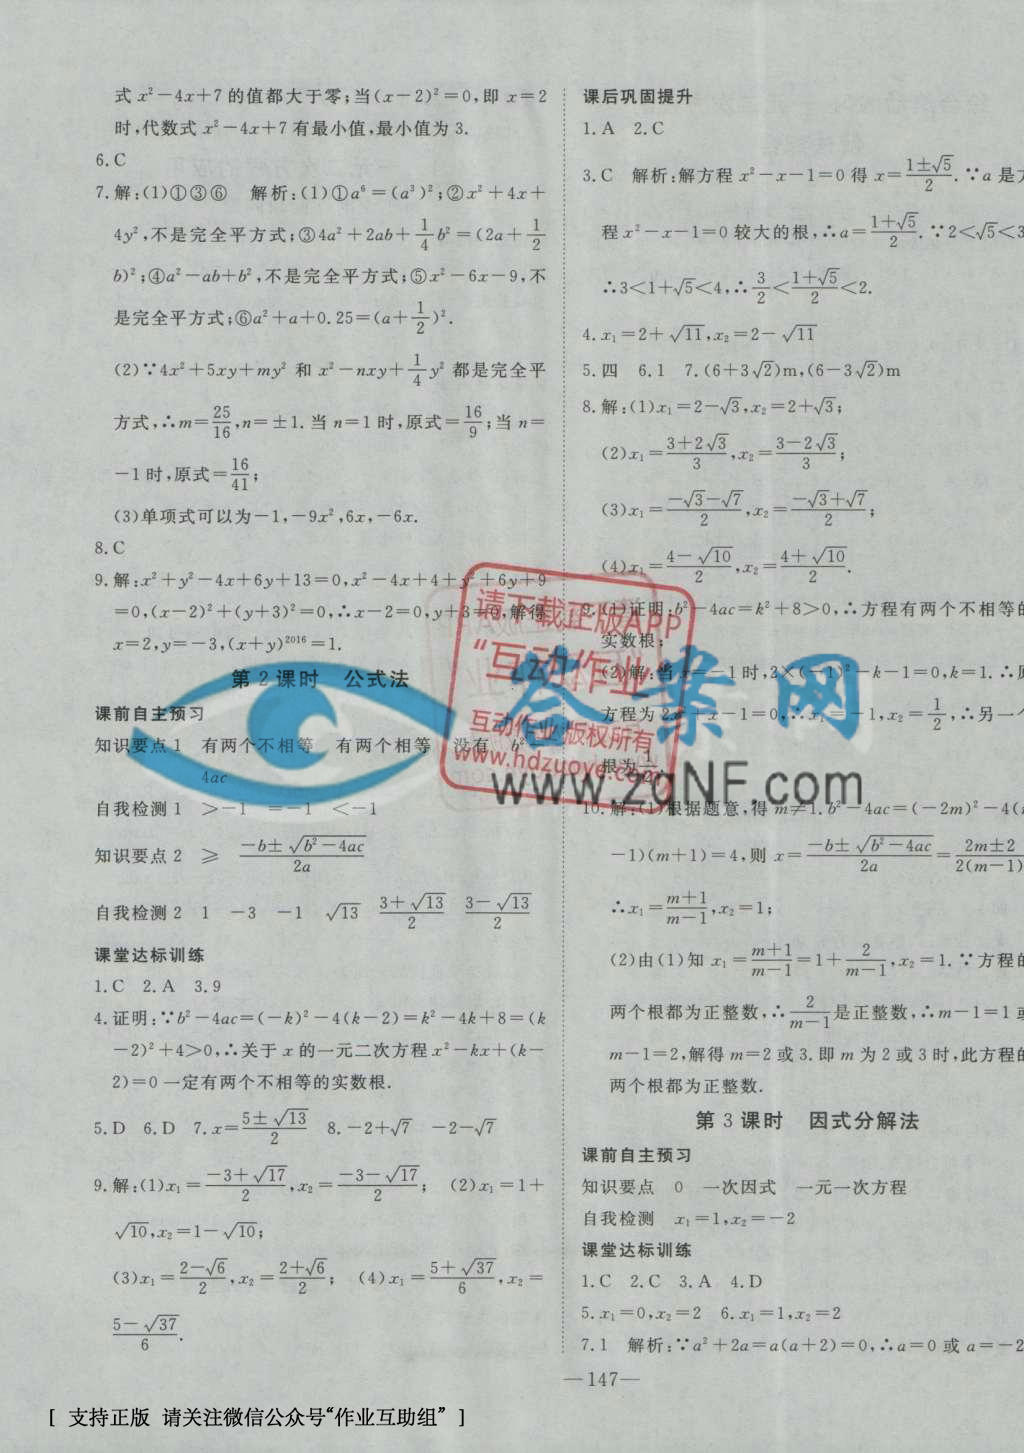 式 x²－4x＋7 的值都大于零；当(x－2)²＝0，即 x＝2
时，代数式 x²－4x＋7 有最小值，最小值为 3.
6.C
7.解：(1)①③⑥　解析：(1)①a⁶＝(a³)²；②x²＋4x＋
4y²，不是完全平方式；③4a²＋2ab＋1/4 b²＝(2a＋1/2
b)²；④a²－ab＋b²，不是完全平方式；⑤x²－6x－9，不
是完全平方式；⑥a²＋a＋0.25＝(a＋1/2)².
(2)∵4x²＋5xy＋my² 和 x²－nxy＋1/4 y² 都是完全平
方式，∴m＝25/16，n＝±1.当 n＝1 时，原式＝16/9；当 n＝
－1 时，原式＝16/41；
(3)单项式可以为－1，－9x²，6x，－6x.
8.C
9.解：x²＋y²－4x＋6y＋13＝0，x²－4x＋4＋y²＋6y＋9
＝0，(x－2)²＋(y＋3)²＝0，∴x－2＝0，y＋3＝0，解得
x＝2，y＝－3，(x＋y)²⁰¹⁶＝1.
第 2 课时　公式法
课前自主预习
知识要点 1　有两个不相等　有两个相等　没有　b²－
4ac
自我检测 1　＞－1　＝－1　＜－1
知识要点 2　≥　(－b±√(b²－4ac))/2a
自我检测 2　1　－3　－1　√13　(3＋√13)/2　(3－√13)/2
课堂达标训练
1.C　2.A　3.9
4.证明：∵b²－4ac＝(－k)²－4(k－2)＝k²－4k＋8＝(k
－2)²＋4＞0，∴关于 x 的一元二次方程 x²－kx＋(k－
2)＝0 一定有两个不相等的实数根.
5.D　6.D　7.x＝(5±√13)/2　8.－2＋√7　－2－√7
9.解：(1)x₁＝(－3＋√17)/2，x₂＝(－3－√17)/2；　(2)x₁＝1＋
√10，x₂＝1－√10；
(3)x₁＝(2－√6)/2，x₂＝(2＋√6)/2；　(4)x₁＝(5＋√37)/6，x₂＝
(5－√37)/6.
课后巩固提升
1.A　2.C
3.C　解析：解方程 x²－x－1＝0 得 x＝(1±√5)/2.∵a 是方
程 x²－x－1＝0 较大的根，∴a＝(1＋√5)/2.∵2＜√5＜3
∴3＜1＋√5＜4，∴3/2＜(1＋√5)/2＜2.
4.x₁＝2＋√11，x₂＝2－√11
5.四　6.1　7.(6＋3√2)m，(6－3√2)m
8.解：(1)x₁＝2－√3，x₂＝2＋√3；
(2)x₁＝(3＋2√3)/3，x₂＝(3－2√3)/3；
(3)x₁＝(－√3－√7)/2，x₂＝(－√3＋√7)/2；
(4)x₁＝(4－√10)/2，x₂＝(4＋√10)/2.
9.(1)证明：b²－4ac＝k²＋8＞0，∴方程有两个不相等的
实数根；
(2)解：当 x＝－1 时，2×(－1)²－k－1＝0，k＝1.∴原
方程为 2x²＋x－1＝0，∴x₁＝－1，x₂＝1/2，∴另一个
根为 1/2.
10.解：(1)根据题意，得 m≠1.b²－4ac＝(－2m)²－4(m
－1)(m＋1)＝4，则 x＝(－b±√(b²－4ac))/2a＝(2m±2)/2(m－1)
∴x₁＝(m＋1)/(m－1)，x₂＝1；
(2)由(1)知 x₁＝(m＋1)/(m－1)＝1＋2/(m－1)，x₂＝1.∵方程的
两个根都为正整数，∴2/(m－1)是正整数，∴m－1＝1 或
m－1＝2，解得 m＝2 或 3.即 m 为 2 或 3 时，此方程的
两个根都为正整数.
第 3 课时　因式分解法
课前自主预习
知识要点　0　一次因式　一元一次方程
自我检测　x₁＝1，x₂＝－2
课堂达标训练
1.C　2.C　3.A　4.D
5.x₁＝0，x₂＝2　6.x₁＝1，x₂＝－2
7.1　解析：∵a²＋2a＝a(a＋2)＝0，∴a＝0 或 a＝－2
—147—
请下载正版APP
“互动作业”
互动作业版权所有
www.hdzuoye.com
答案网
www.zqNF.com
[ 支持正版 请关注微信公众号“作业互助组” ]